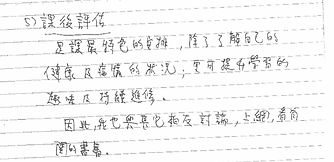 5) 課後評估
是課最特色的安排，除了了解自己的
健康及疾病的狀況；更可提升學習的
趣味及持續進修。
因此，我也與其它相反討論，上網，看有
關的書籍。